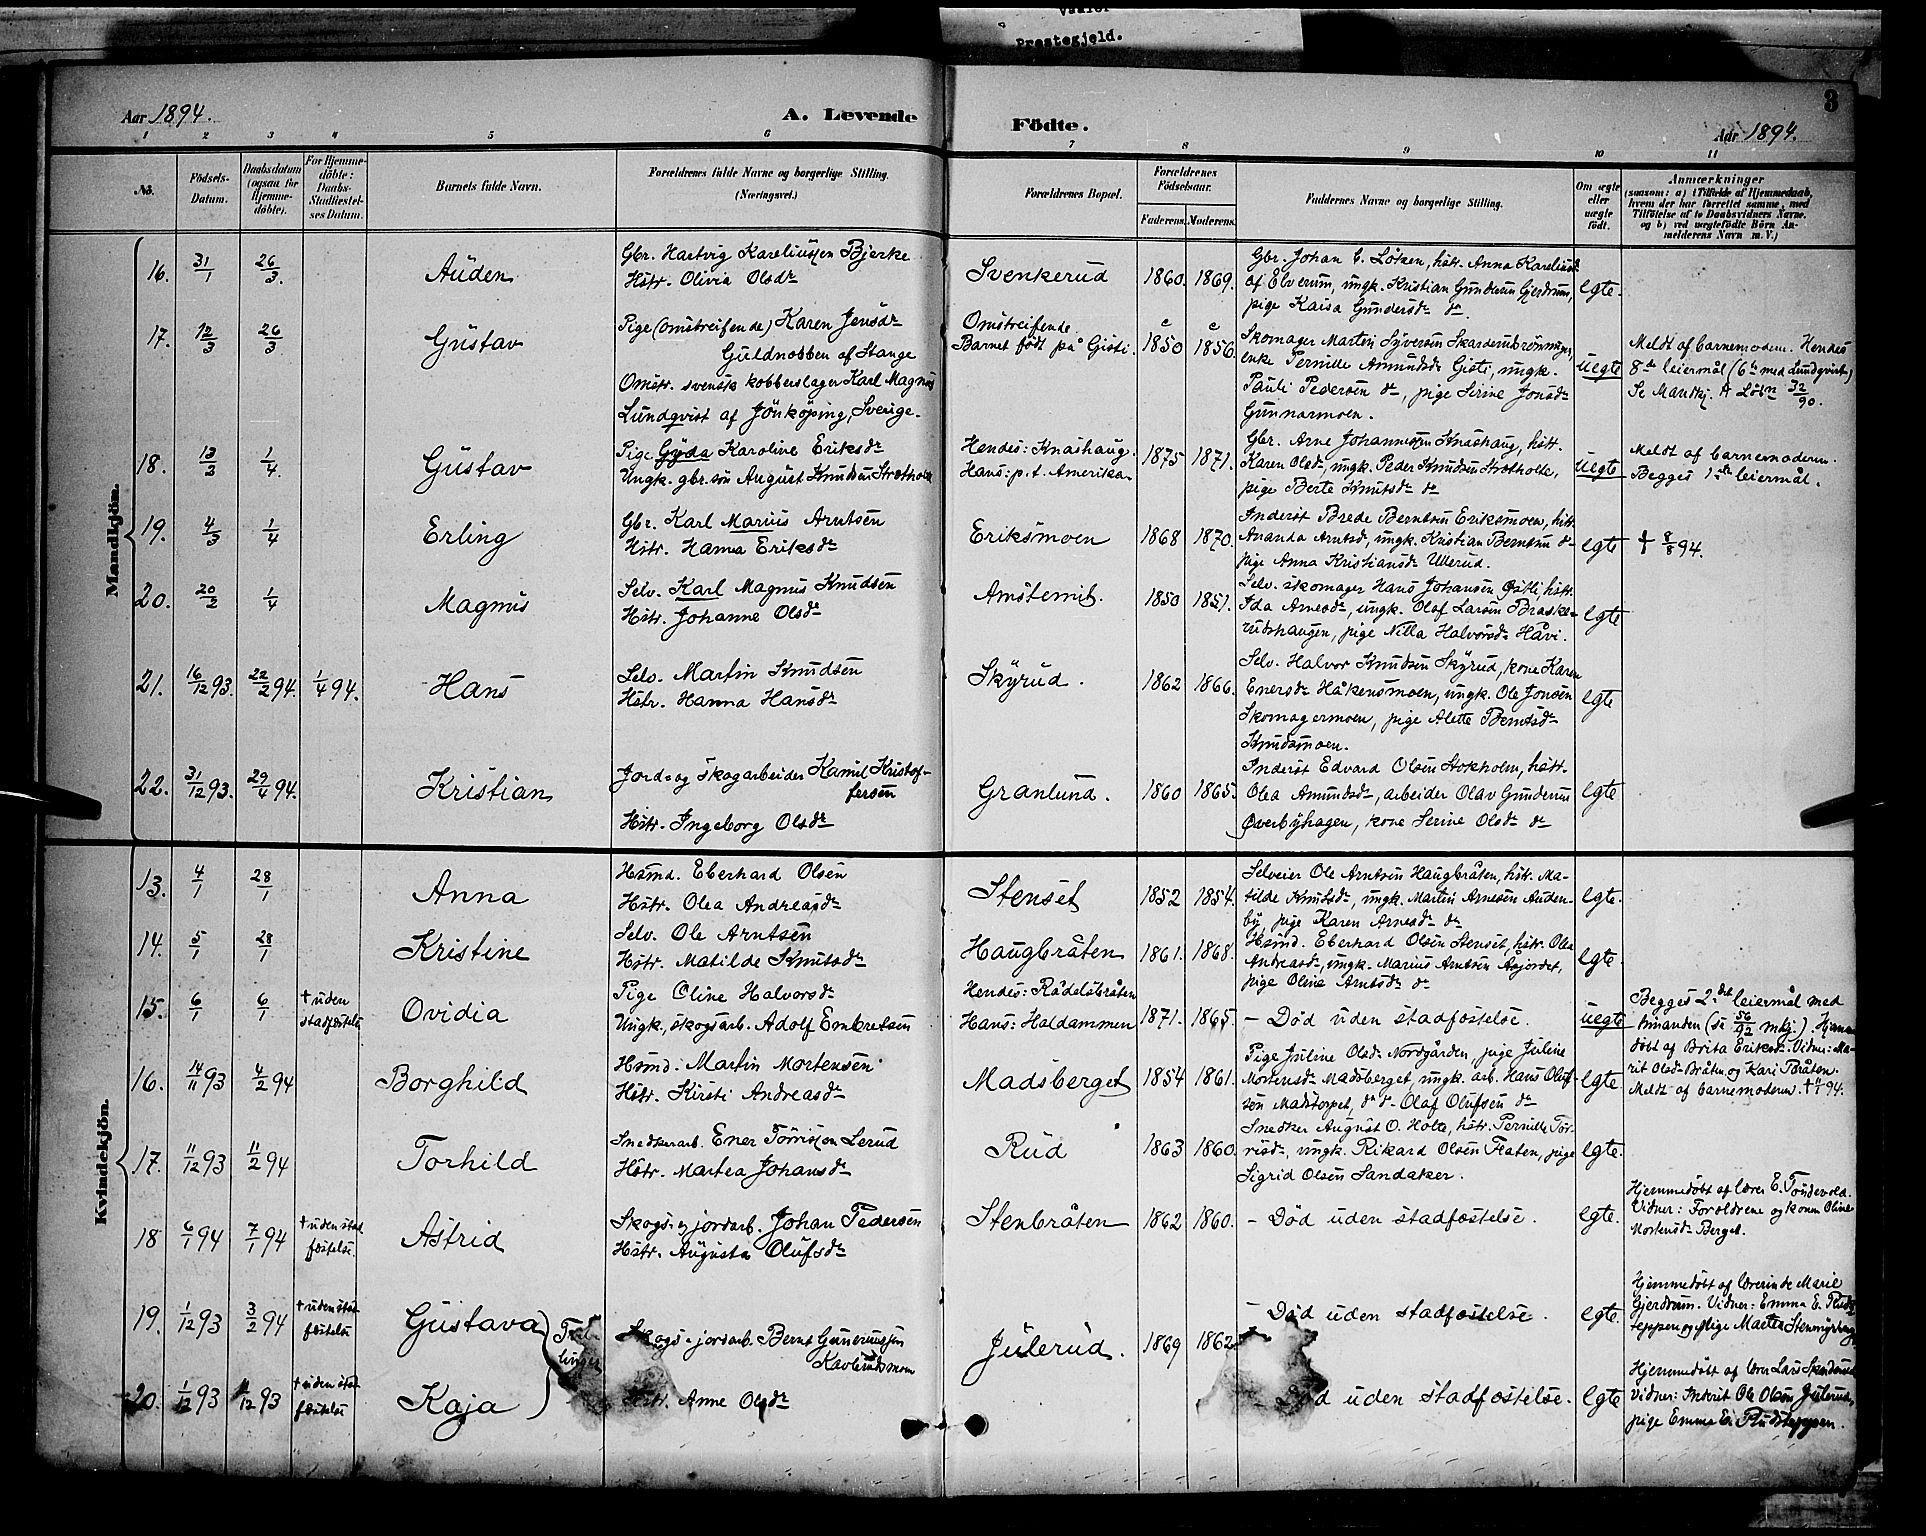 Vaaler
Prestegjeld.
3
Aar 1894.
A. Levende Födte.
Aar 1894.
1 2 3 4 5 6 7 8 9 10 11
No.
Födsels-Datum.
Daabsdatum (ogsaa for Hjemme-döbte).
For Hjemme-döbte: Daabs-Stadfæstel-ses Datum.
Barnets fulde Navn.
Forældrenes fulde Navne og borgerlige Stilling.
(Næringsvei.)
Forældrenes Bopæl.
Forældrenes Födselsaar.
Faderens. Moderens.
Faddernes Navne og borgerlige Stilling.
Om ægte eller uægte födt.
Anmærkninger
(saasom: a) i Tilfælde af Hjemmedaab, hvem der har forrettet samme, med Tilföielse af to Daabsvidners Navne. og b) ved uægtefödte Börn Anmelderens Navn m. V.)
Mandkjön.
16. 31/1 26/3. Auden
Gbr. Hartvig Kareliussen Bjerke
Hstr. Olivia Olsdr
Svenkerud 1860. 1869.
Gbr. Johan C. Löken, hstr. Anna Kareliusd
af Elverum, ungk. Kristian Gundersen Gjerdrum,
pige Kaisa Gundersdr dr.
egte.
17. 12/3 26/3 Gustav
Pige (omstreifende) Karen Jensdr
Guldnobben af Stange
Omstr. svensk kobberslager Karl Magnus
Lundqvist af Jönköping, Sverige.
Omstreifende.
Barnet född på Gisti.
c 1850 c 1856.
Skomager Martin Syversen Skarderudrönningen,
enke Pernille Amundsdr Gisti, ungk.
Pauli Pedersen dr, pige Sirine Jonsdr
Gunnarmoen.
uegte
Meldt af barnemodern. Hendes
8de leiermål (6te med Lundqvist)
Se Mandkj. A Löbn 32/90.
18. 13/3 1/4. Gustav
Pige Gyda Karoline Eriksdr
Ungk. gbr.sön August Knudsen Strotholte
Hendes: Knashaug.
Hans: p.t. Amerika.
1875 1871.
Gbr. Arne Johannessen Knashaug, hstr.
Karen Olsdr, ungk. Peder Knudsen Strotholte,
pige Berte Knutsdr dr
uegte
Meldt af barnemodern.
Begges 1ste leiermål.
19. 4/3 1/4 Erling
Gbr. Karl Marius Arntsen
Hstr. Hanna Eriksdr
Eriksmoen 1868 1870.
Inderst Brede Berntsen Eriksmoen, hstr.
Ananda Arntsd, ungk. Kristian Berntsen dr
pige Anna Kristiansdr Ullerud.
egte
† 8/8 94.
20. 20/2 1/4 Magnus
Selv. Karl Magnus Knudsen
Hstr. Johanne Olsdr
1850 1851.
Selv. skomager Hans Johansen Gisti, hstr.
Ida Arnesdr, ungk. Olaf Larsen Braske-
rudshaugen, pige Nilla Halvorsdr Håvi.
egte
21. 16/12 93. 22/2 94. 1/4 94. Hans
Selv. Martin Knudsen
Hstr. Hanna Hansdr
Skyrud. 1862 1866.
Selv. Halvor Knudsen Skyrud, kone Karen
Enersdr Håkensmoen, ungk. Ole Jonsen
Skomagermoen, pige Alette Berntsdr
Knudsmoen.
egte
22. 31/12 93. 29/4 94. Kristian
Jord- og skogarbeider Kamil Kristof-
fersen
Hstr. Ingeborg Olsdr
Granlund. 1860 1865.
Inderst Edvard Olsen Stokholm, hstr.
Olea Amundsdr, arbeider Olav Gundersen
Överbyhagen, kone Serine Olsdr dr
egte
Kvindekjön.
13. 4/1 28/1 Anna
Hsmd. Eberhard Olsen
Hstr. Olea Andreasdr
Stenset 1852 1854.
Selveier Ole Arntsen Haugbråten, hstr. Ma-
tilde Knutsdr, ungk. Martin Arnesen Auden-
by, pige Karen Arnesdr dr
egte.
14. 5/1 28/1 Kristine
Selv. Ole Arntsen
Hstr. Matilde Knutsdr
Haugbråten 1861. 1868.
Hsmd. Eberhard Olsen Stenset, hstr. Olea
Andreasdr, ungk. Marius Arntsen Åsjordet,
pige Oline Arntsdr dr
egte.
15. 6/1 6/1 † uden stadfæstelse Ovidia
Pige Oline Halvorsdr
Ungk., skogsarb. Adolf Embretsen
Hendes: Rådelsbråten
Hans: Haldammen
1871. 1865.
- Död uden stadfæstelse.
uegte
Begges 2det leiermål med
hinanden (se 56/92 mkj.). Hjemme-
döbt af Brita Eriksdr. Vidner: Ma-
rit Olsdr Bråten og Kari Bråten.
Meldt af barnemodern.
16. 14/11 93 4/2 94 Borghild
Hsmd. Martin Mortensen
Hstr. Kirsti Andreasdr
Madsberget 1854 1861.
Pige Juline Olsdr Nordgården, pige Juline
Mortensdr Madsberget, ungk. arb. Hans Oluf-
sen Madstorpet, dr dr Olaf Olufsen dr
egte
17. 11/12 93 11/2 94 Torhild
Snedkerarb. Ener Törrissen Lerud
Hstr. Martea Johansdr
Rud 1863 1860.
Snedker August O. Holte, hstr. Pernille Tör-
risdr, ungk. Rikard Olsen Flaten, pige
Sigrid Olsen Sandaker.
egte.
18 6/1 94 7/1 94 † uden stadfæstelse. Astrid
Skogs- og jordarb. Johan Pedersen
Hstr. Augusta Olufsdr
Stenbråten 1862 1860.
- Död uden stadfæstelse.
egte.
Hjemmedöbt af lærer E. Tondevold.
Vidner: Forældrene og konen Oline
Mortensdr Berget.
19. 1/12 93 3/2 94 † uden stadfæstelse Gustava
Skogs- og jordarb. Bernt Gunerussen
Julerud. 1869 1862.
- Död uden stadfæstelse.
egte.
Hjemmedöbt af lærerinde Marie
Gjerdrum. Vidner: Emma E. Ruds-
teppen og pige Martea
20. 1/12 93 93 † uden stadfæstelse Kaja
Hstr. Anne Olsdr
Död uden stadfæstelse.
egte
Hjemmedöbt af lærer Lars
Vidner: Inderst Ole Olsen Julerud,
pige Emma E. Rudsteppen.